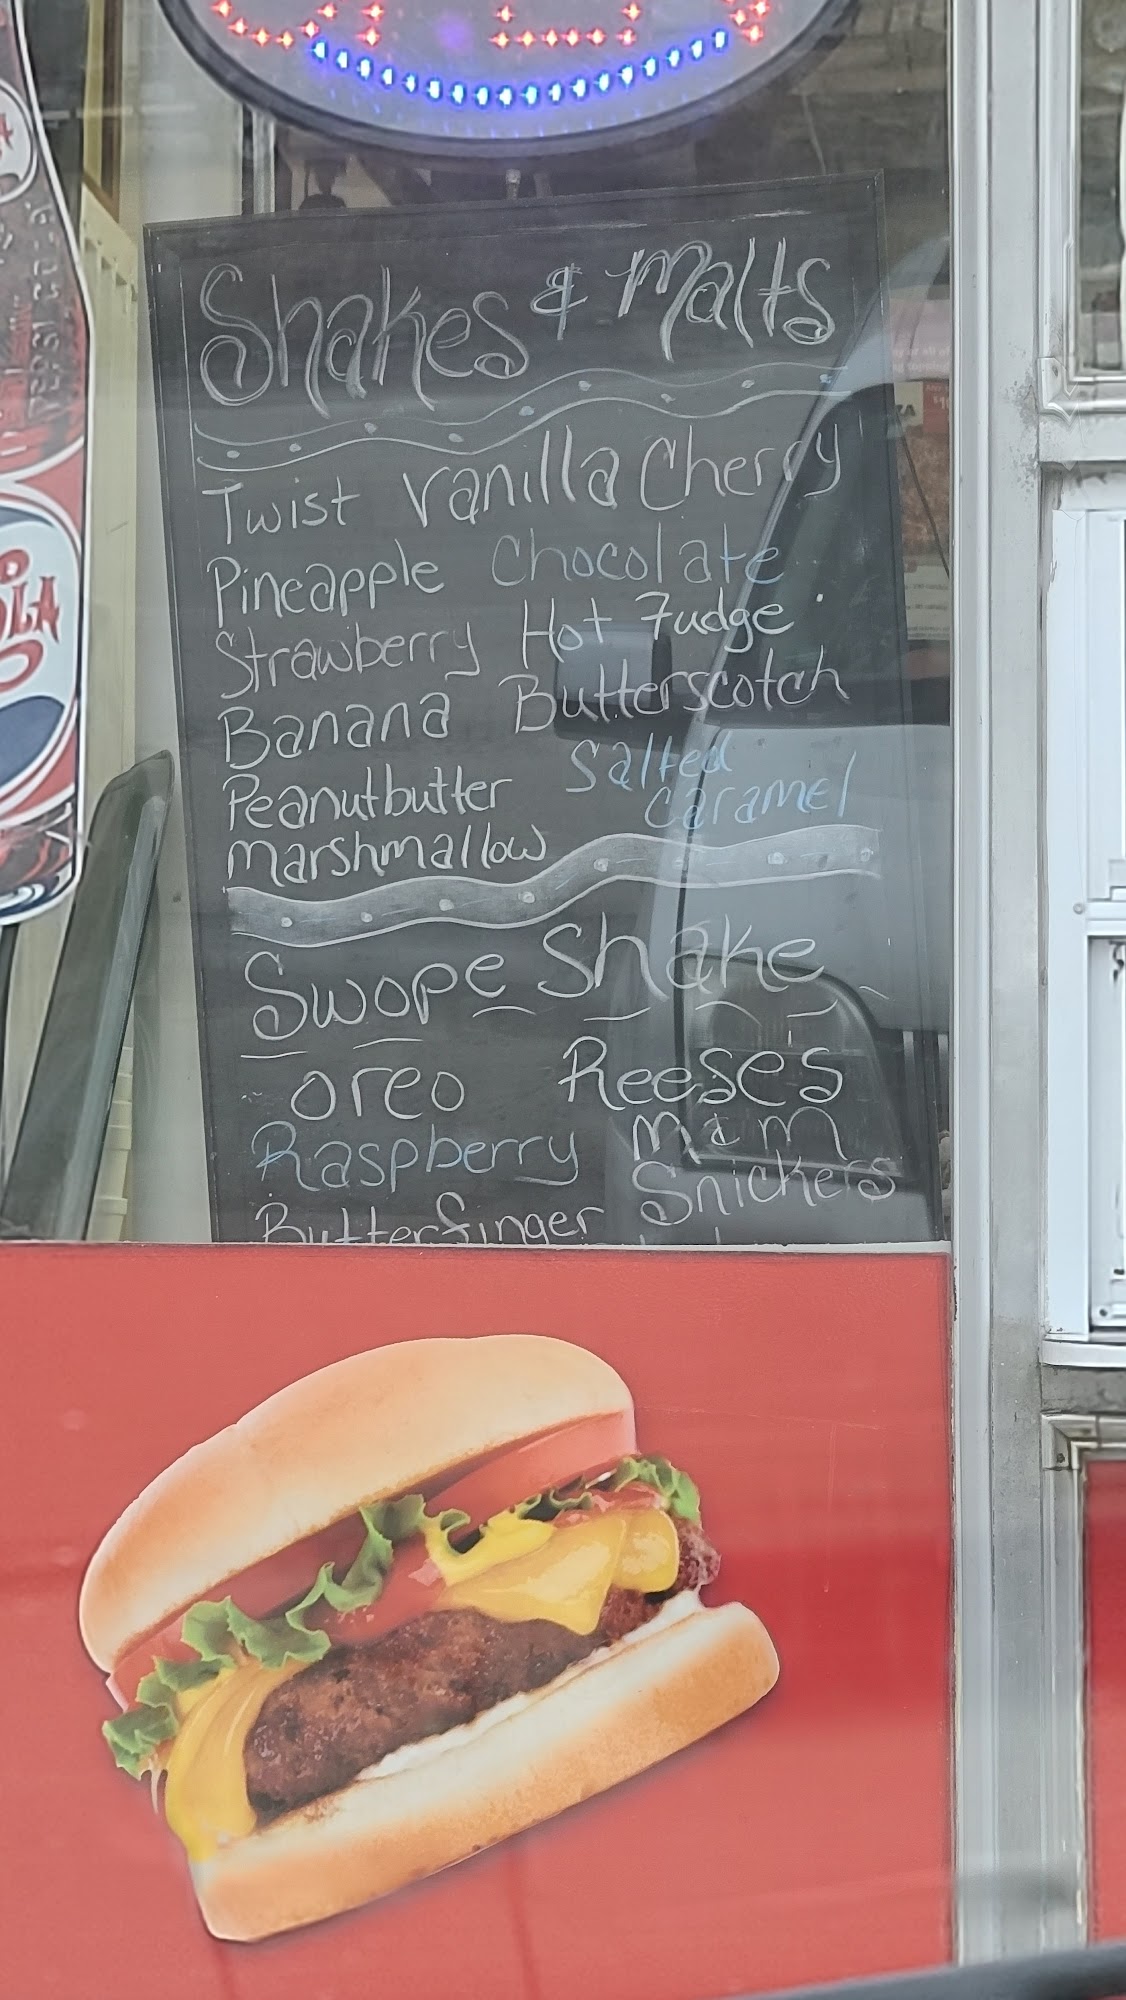 Shakes & Malts
Twist Vanilla Cherry
Pineapple Chocolate
Strawberry Hot Fudge
Banana Butterscotch
Peanutbutter Salted
Caramel
Marshmallow
Swope Shake
Oreo Reeses
Raspberry M&M
Butterfinger Snickers
OLA